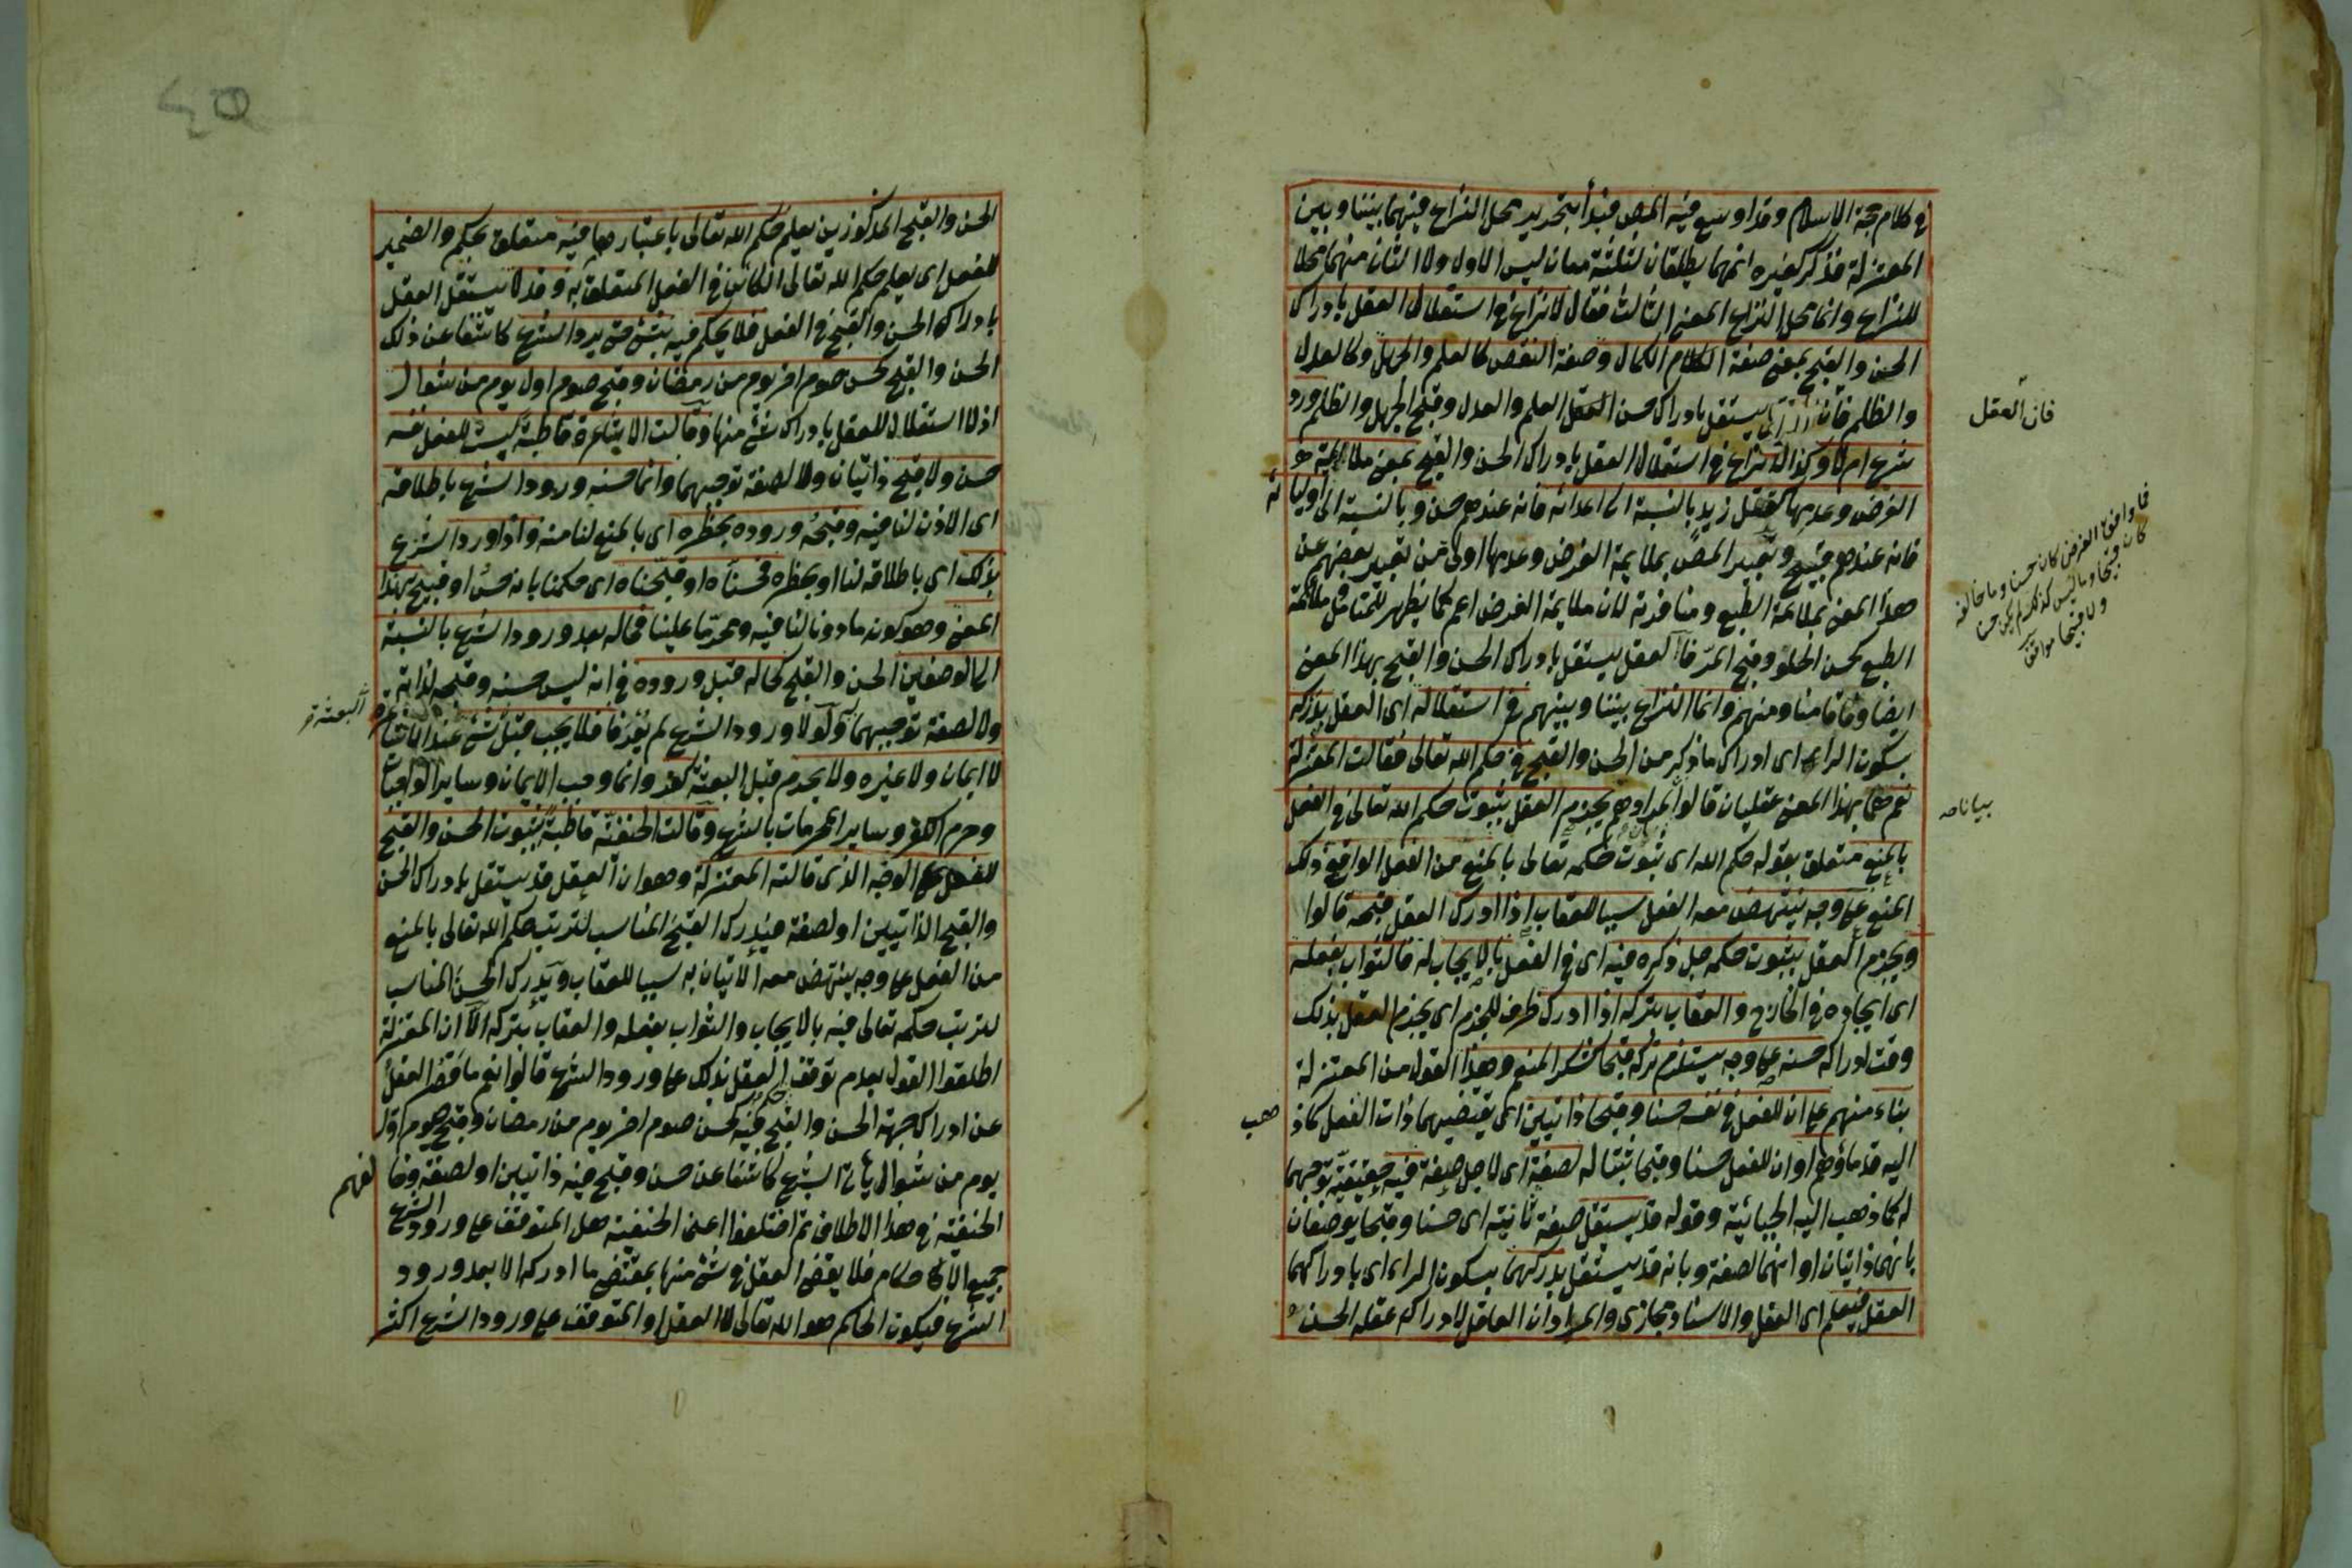 في كلام حجة الاسلام وقد اوسع فيه المص فبدأ بتحرير محل النزاع فيهما بيننا وبين
المعتزلة فذكر كغيره انهما يطلقان لثلثة معان ليس الاول ولا الثان منهما محلا
للنزاع وانما محل النزاع المعنى الثالث فقال لا نزاع في استقلال العقل بادراك
الحسن والقبح بمعنى صفة الكمال وصفة النقص كالعلم والجهل وكالعدل
والظلم فان يستقل بادراك حسن العلم والعدل وقبح الجهل والظلم ورد
فان العقل
شرع ام لا وكذا لا نزاع في استقلال العقل بادراك الحسن والقبح بمعنى ملايمة
الغرض وعدمها كقتل زيد بالنسبة الى اعدائه فانه عندهم حسن وبالنسبة الى اوليائه
فانه عندهم قبيح وتعبير المص بملايمة الغرض وعدمها اولى من تعبير بعضهم عن
فما وافق الغرض كان حسنا وما خالفه
كان قبيحا وما ليس كذلك لم يكن حسنا
ولا قبيحا مواقف
هذا المعنى بملايمة الطبع ومنافرته لان ملايمة الغرض اعم كما يظهر للمتامل ملائمة
الطبع كحسن الحلو وقبح المر فالعقل يستقل بادراك الحسن والقبح بهذا المعنى
ايضا وفاقا منا ومنهم وانما النزاع بيننا وبينهم في استقلاله اى العقل بدركه
بسكون الراء اى ادراك ما ذكر من الحسن والقبح في حكم الله تعالى فقالت المعتزلة
نعم هما بهذا المعنى عقليان قالوا يجزم العقل بثبوت حكم الله تعالى في الفعل
بيانا صه
بالمنع متعلق بقوله حكم الله اى ثبوت حكمه تعالى بالمنع من الفعل الواقع ذلك
المنع على وجه ينتهض معه الفعل سببا للعقاب اذا ادرك العقل قبحه قالوا
ويجزم العقل بثبوت حكمه جل ذكره فيه اى في الفعل بالايجاب له فالثواب بفعله
اى ايجاده في الخارج والعقاب بتركه اذا ادرك ظرف للجزم اى يجزم العقل بذلك
وقت ادراكه حسنه على وجه يستلزم تركه قبحا كشكر المنعم وهذا القول من المعتزلة
بناء منهم على ان للفعل في نفسه حسنا وقبحا ذاتيين اى يقتضيهما ذات الفعل كما ذهب
اليه قدماؤهم او ان للفعل حسنا وقبحا ثبتا له لصفة اى لاجل صفة فيه حقيقية توجبهما
له كما ذهب اليه الجبائية وقوله قد يستقل صفة ثانية اى حسنا وقبحا يوصفان
بانهما ذاتيان او انهما لصفة وبانه قد يستقل بدركهما بسكون الراء اى بادراكهما
العقل فيعلم اى العقل والاسناد مجازى والمراد ان العاقل لادراكه عقله الحسن
الحسن والقبح المذكورين يعلم حكم الله تعالى باعتبارهما فيه متعلق بحكم والضمير
للفعل اى يعلم حكم الله تعالى الكائن في الفعل المتعلق به وقد لا يستقل العقل
بادراك الحسن والقبح في الفعل فلا يحكم فيه بشئ حتى يرد الشرع كاشفا عن ذلك
الحسن والقبح كحسن صوم اخر يوم من رمضان وقبح صوم اول يوم من شوال
اذ لا استقلال للعقل بادراك شئ منها وقالت الاشاعرة قاطبة ليس للفعل نفسه
حسن ولا قبح ذاتيان ولا لصفة توجبهما وانما حسنه ورود الشرع باطلاقه
اى الاذن لنا فيه وقبحه وروده بحظره اى بالمنع لنا منه واذا ورد الشرع
بذلك اى باطلاقه لنا او بحظره فحسناه او قبحناه اى حكمنا بانه حسن او قبيح بهذا
المعنى وهو كونه ماذونا لنا فيه ومحرما علينا فحاله بعد ورود الشرع بالنسبة
الى الوصفين الحسن والقبح كحاله قبل وروده في انه ليس حسنه وقبحه لذاته
ولا لصفة توجبهما ولولا ورود الشرع لم يعرفا فلا يجب قبل شئ عند الاشاعرة
البعثة
لا ايمان ولا غيره ولا يحرم قبل البعثة كفر وانما وجب الايمان وساير الواجبات
وحرم الكفر وساير المحرمات بالشرع وقالت الحنفية قاطبة بثبوت الحسن والقبح
للفعل على الوجه الذى قالته المعتزلة وهو ان العقل قد يستقل بادراك الحسن
والقبح الذاتيين او لصفة فيدرك القبح المناسب لترتب حكم الله تعالى بالمنع
من الفعل على وجه ينتهض معه الاتيان به سببا للعقاب ويدرك الحسن المناسب
لترتب حكمه تعالى فيه بالايجاب والثواب بفعله والعقاب بتركه الا ان المعتزلة
اطلقوا القول بعدم توقف حكم العقل بذلك على ورود الشرع قالوا نعم ما قصر العقل
عن ادراك جهة الحسن والقبح فيه كحسن صوم اخر يوم من رمضان وقبح صوم اول
يوم من شوال ياتي الشرع كاشفا عن حسن وقبح فيه ذاتيين او لصفة وفا لفهم
الحنفية في هذا الاطلاق ثم اختلفوا اعنى الحنفية هل المتوقف على ورود الشرع
جميع الاحكام فلا يقضى العقل في شئ منها بمقتضى ما ادركه الا بعد ورود
الشرع فيكون الحاكم هو الله تعالى لا العقل او المتوقف على ورود الشرع اكثر